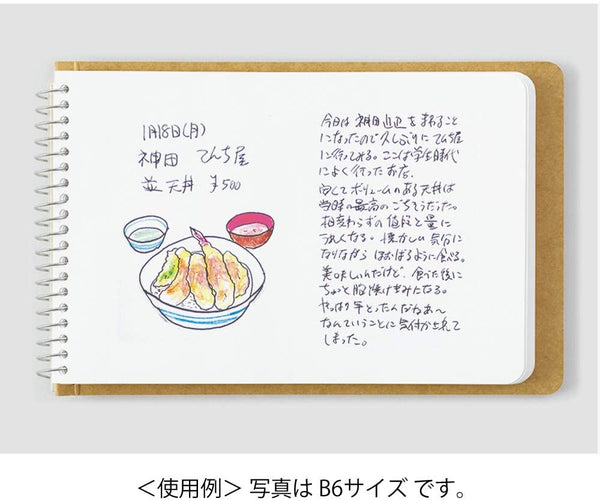 1月18日(月)
神田 てんち屋
並 天丼 ¥500
今日は 神田近辺を まわること
になったので 久しぶりに てんち屋
に行ってみる。ここは 学生時代
によく 行った お店。
して ボリュームの ある 天丼は
当時の最高の ごちそうだった。
相変わらずの 値段と量に
うれしくなる。懐かしの 気分に
なりながら ほおばるように食べる。
美味しいんだけど、食べた後に
ちょっと胸焼けぎみになる。
やっぱり 年とったんだなあ〜
なんていうことに 気付かされて
しまった。
<使用例> 写真は B6サイズ です。